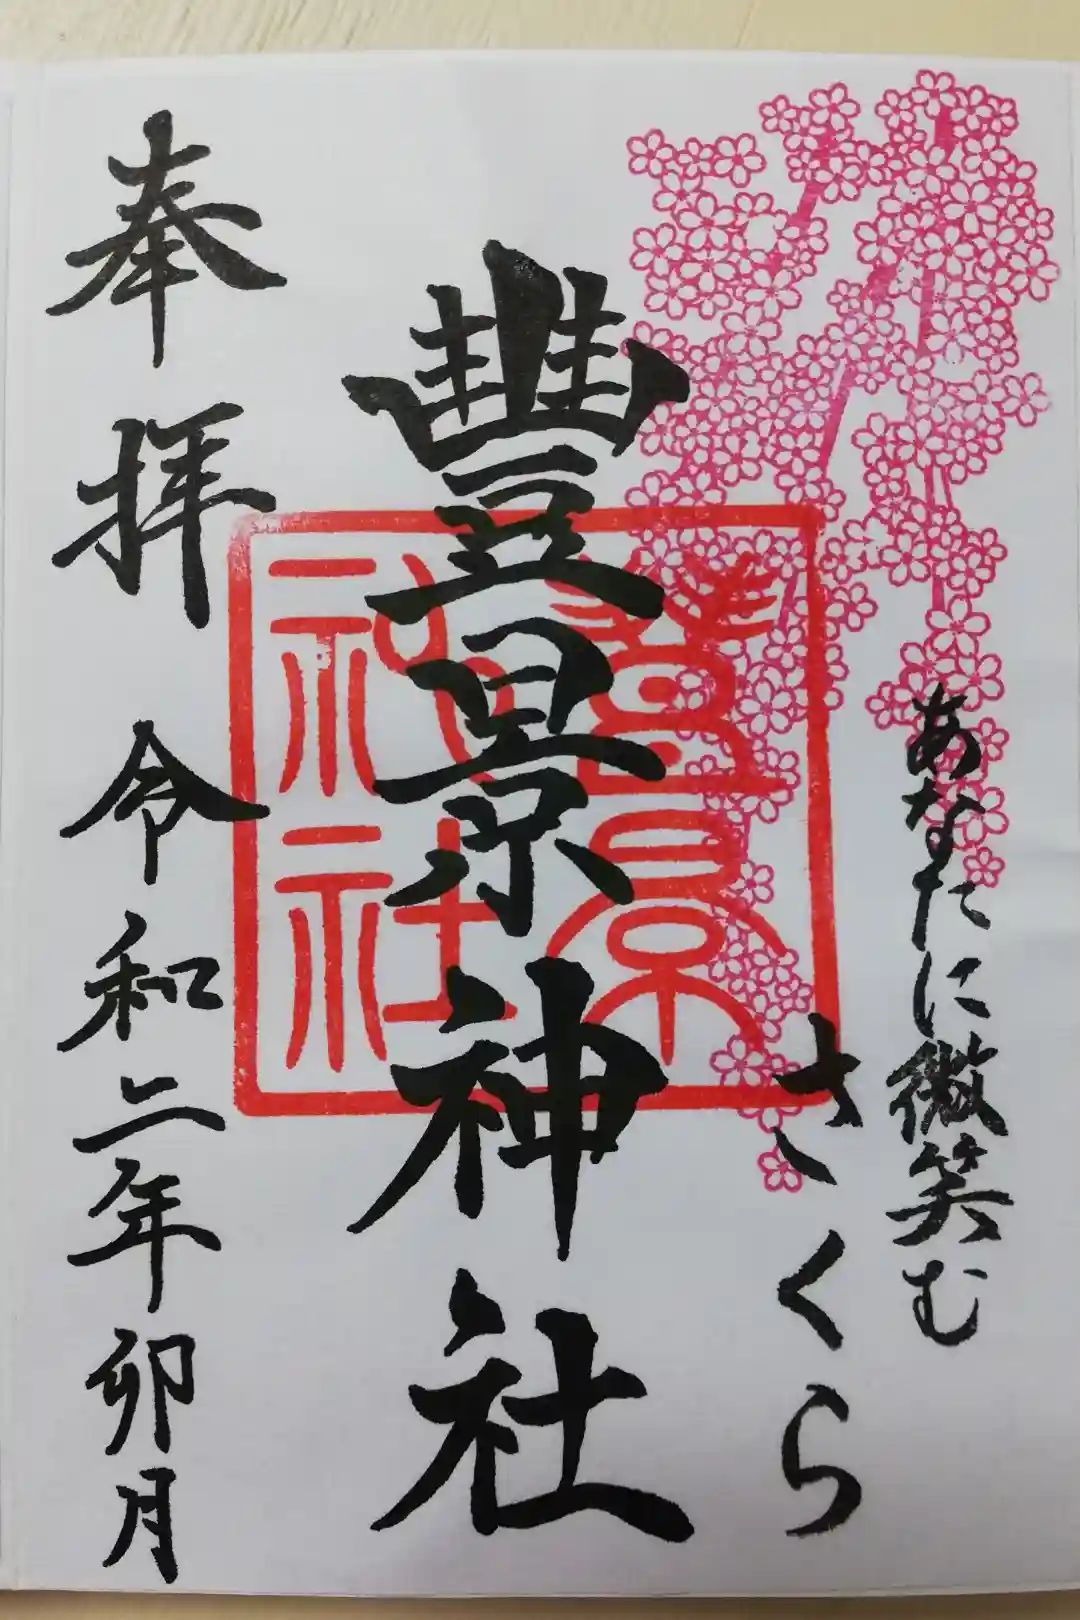 あなたに微笑む
さくら
豐景神社
豐景
神社
奉拝
令和二年卯月